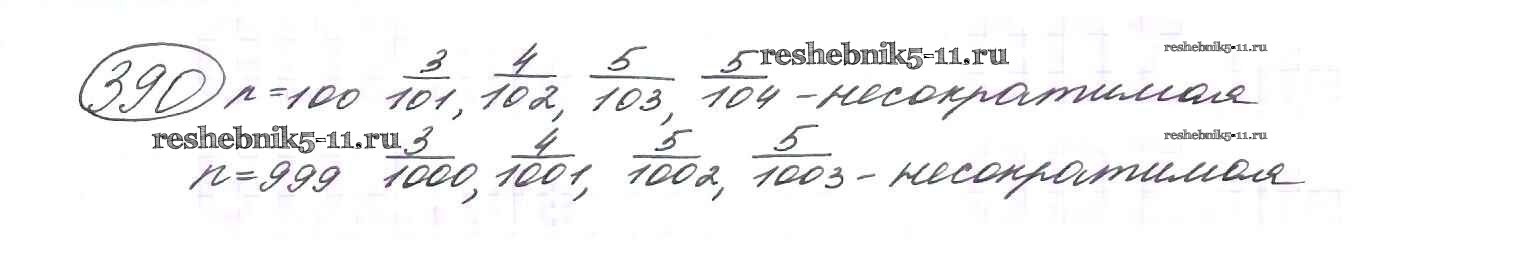 390 n=100 3/101, 4/102, 5/103, 5/104 - несократимая
n=999 3/1000, 4/1001, 5/1002, 5/1003 - несократимая
reshebnik5-11.ru
reshebnik5-11.ru
reshebnik5-11.ru
reshebnik5-11.ru